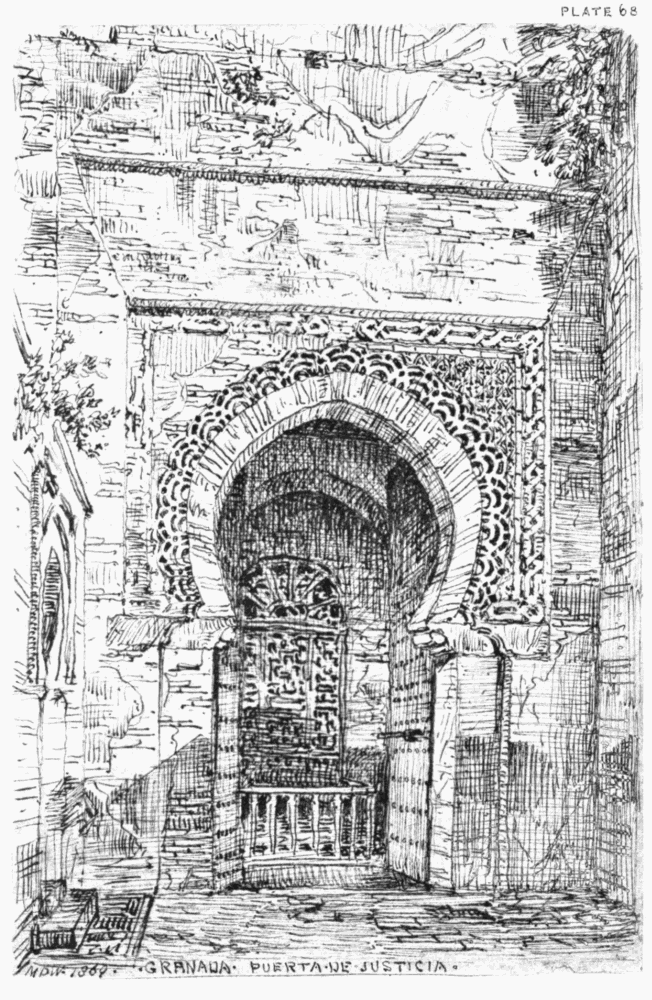 PLATE 68
MDW 1869 · · GRANADA · PUERTA · DE · JUSTICIA ·